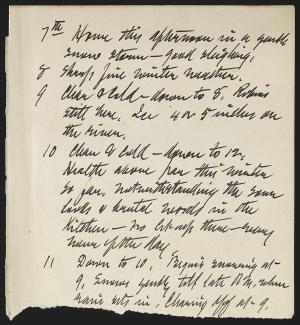 7th Home this afternoon in a gentle
snow storm — good sleighing.
8 Sharp fine winter weather.
9 Clear & cold — down to 8. Robins
still here. Ice 4 or 5 inches on
the river.
10 Clear & cold — down to 12.
Health above par this winter
so far, notwithstanding the
looks & words in the
Kitchen — no
of the day.
11 Down to 10, Begins snowing at
9, snows gently till late P.M. when
rain sets in, Clearing off at 9.